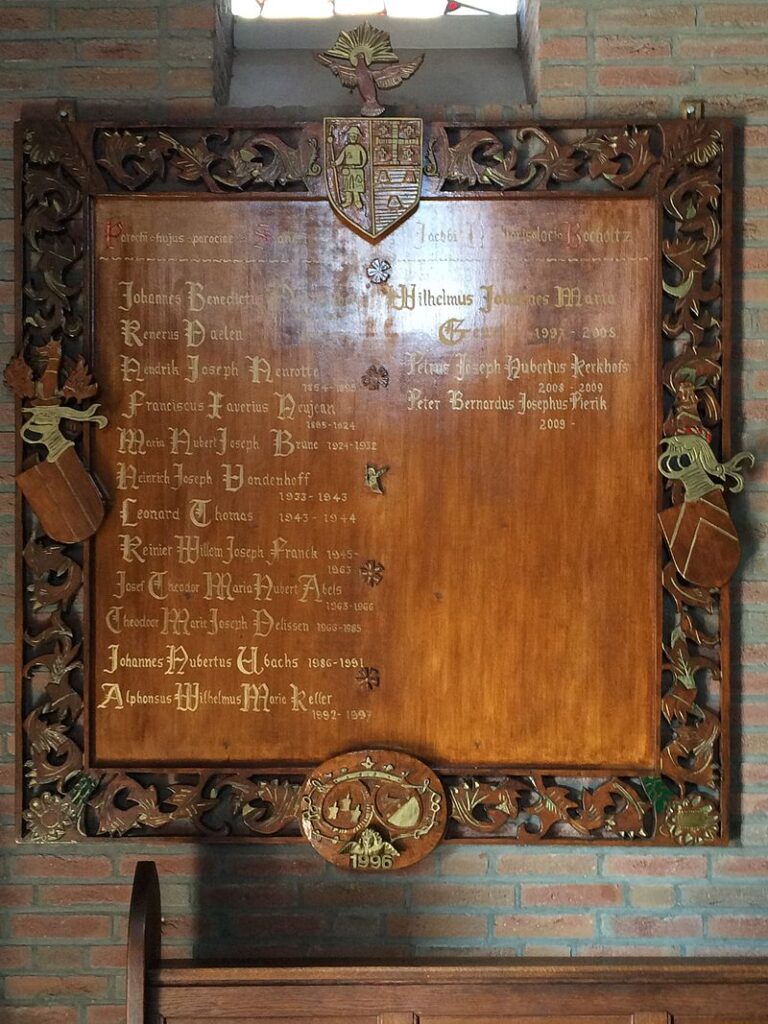 Parochi hujus parociae Sancti Jacobi Bocholtz
Johannes Benedictus
Renerus Daelen
Hendrik Joseph Henrotte
1864-1895
Franciscus Xaverius Neujean
1895-1924
Maria Hubert Joseph Brune 1924-1932
Heinrich Joseph Vondenhoff
1933-1943
Leonard Thomas 1943-1944
Reinier Willem Joseph Franck 1945-
1963
Josef Theodor Maria Hubert Abels
1963-1966
Theodoor Marie Joseph Delissen 1966-1985
Johannes Hubertus Ubachs 1986-1991
Alphonsus Wilhelmus Maria Keller
1992-1997
Wilhelmus Johannes Maria
1997-2008
Petrus Joseph Hubertus Kerkhofs
2008-2009
Peter Bernardus Josephus Pierik
2009-
1996